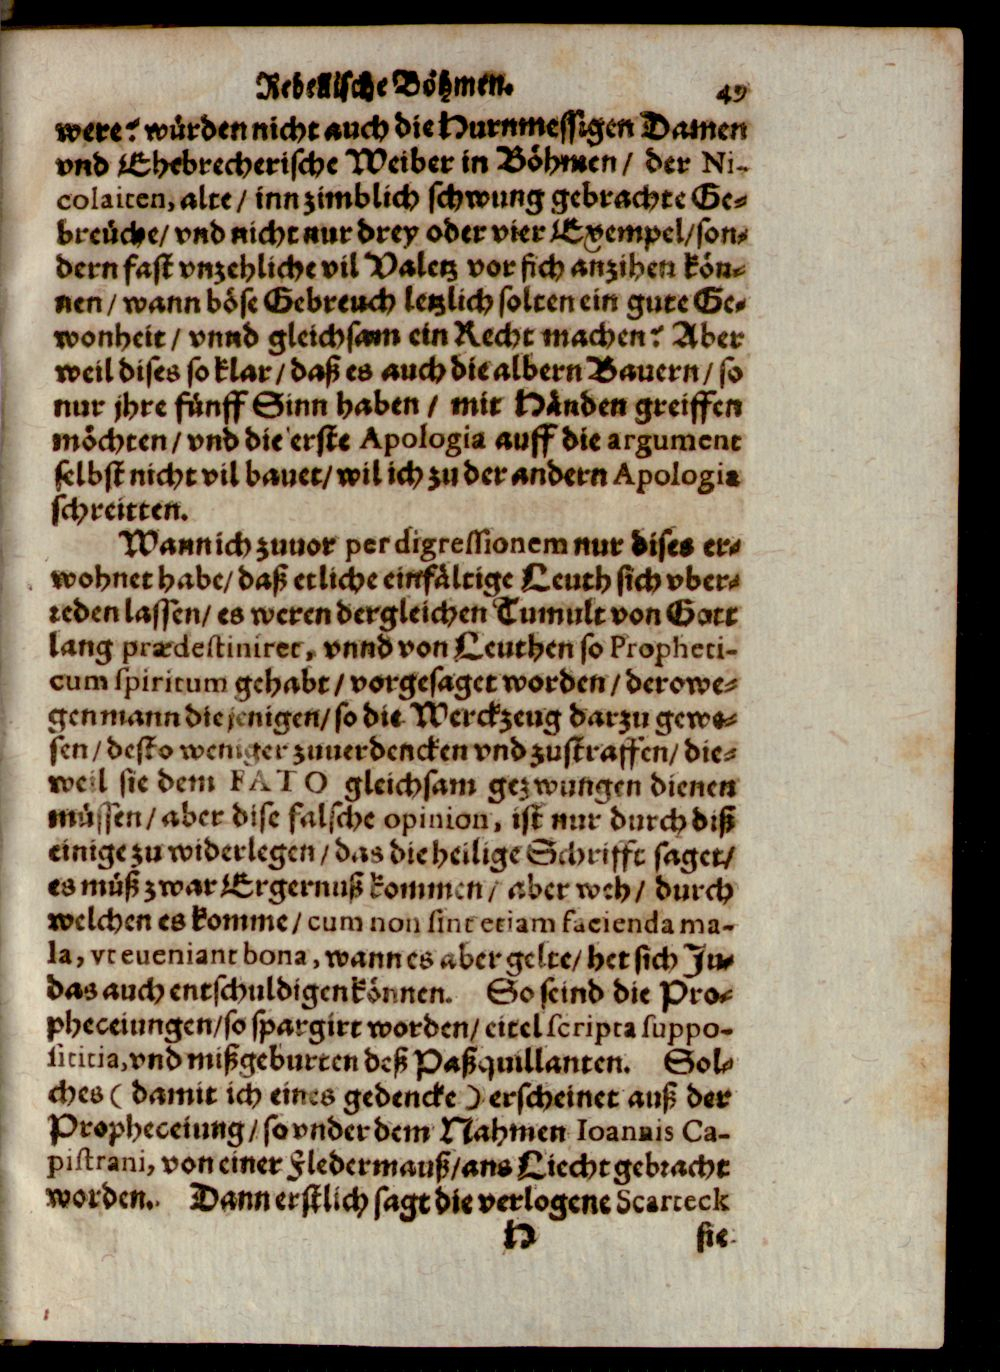 Rebellische Böhmen. 49
were? würden nicht auch die Hurnmessigen Damen
vnd Ehebrecherische Weiber in Böhmen / der Ni-
colaiten, alte / inn zimblich schwung gebrachte Ge-
breüche / vnd nicht nur drey oder vier Exempel / son-
dern fast vnzehliche vil Valetz vor sich anzihen kön-
nen / wann böse Gebreuch letzlich solten ein gute Ge-
wonheit / vnnd gleichsam ein Recht machen? Aber
weil dises so klar / daß es auch die albern Bauern / so
nur jhre fünff Sinn haben / mit Händen greiffen
möchten / vnd die erste Apologia auff die argument
selbst nicht vil bauet / wil ich zu der andern Apologia
schreitten.
Wann ich zuuor per digressionem nur dises er-
wohnet habe / daß etliche einfältige Leuth sich vber-
reden lassen / es weren dergleichen Tumult von Gott
lang prædestiniret, vnnd von Leuthen so Propheti-
cum spiritum gehabt / vorgesaget worden / derowe-
gen mann die jenigen / so die Werckzeug darzu gewe-
sen / desto weniger zuuerdencken vnd zustraffen / die-
weil sie dem FATO gleichsam gezwungen dienen
müssen / aber dise falsche opinion, ist nur durch diß
einige zu widerlegen / das die heilige Schrifft saget /
es müß zwar Ergernuß kommen / aber weh / durch
welchen es komme / cum non sint etiam facienda ma-
la, vt eueniant bona, wann es aber gelte / het sich Ju-
das auch entschuldigen können. So seind die Pro-
pheceiungen / so spargirt worden / eitel scripta suppo-
sititia, vnd mißgeburten deß Paßquillanten. Sol-
ches ( damit ich eines gedencke ) erscheinet auß der
Propheceiung / so vnder dem Nahmen Ioannis Ca-
pistrani, von einer Fledermauß / ans Liecht gebracht
worden. Dann erstlich sagt die verlogene Scarteck
H sie